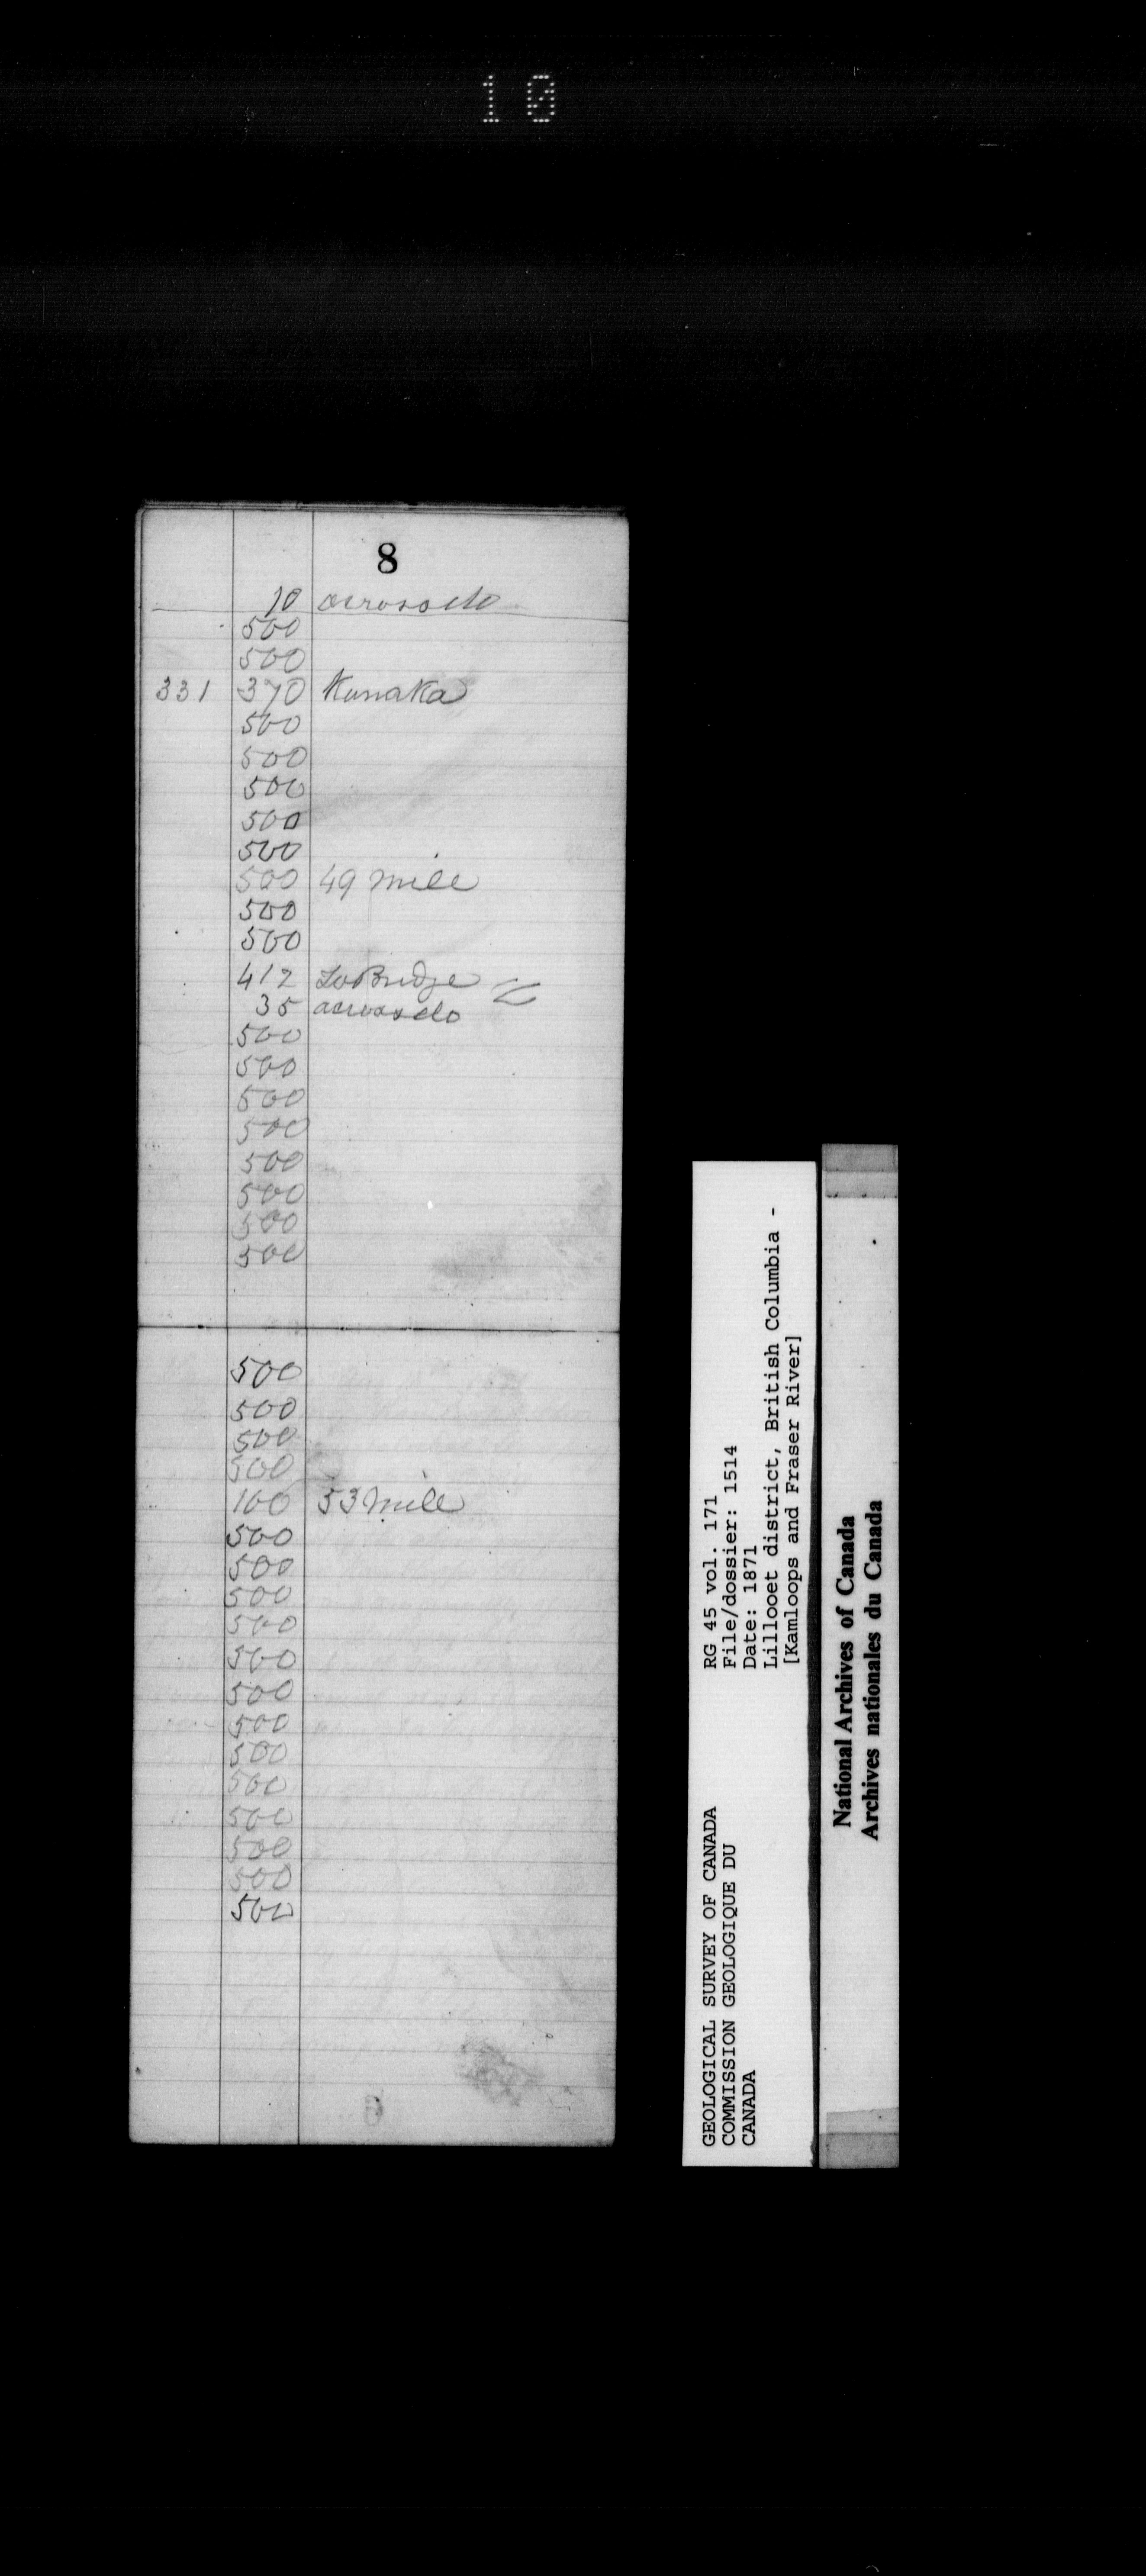 10
8
10 across do
500
500
331 370 Kanaka
500
500
500
500
500
500 49 mile
500
500
412 To Bridge
35 across do
500
500
500
500
500
500
500
500
500
500
500
500
100 53 mile
500
500
500
500
500
500
500
500
500
500
500
500
500
GEOLOGICAL SURVEY OF CANADA
COMMISSION GEOLOGIQUE DU
CANADA
RG 45 vol. 171
File/dossier: 1514
Date: 1871
Lillooet district, British Columbia -
[Kamloops and Fraser River]
National Archives of Canada
Archives nationales du Canada